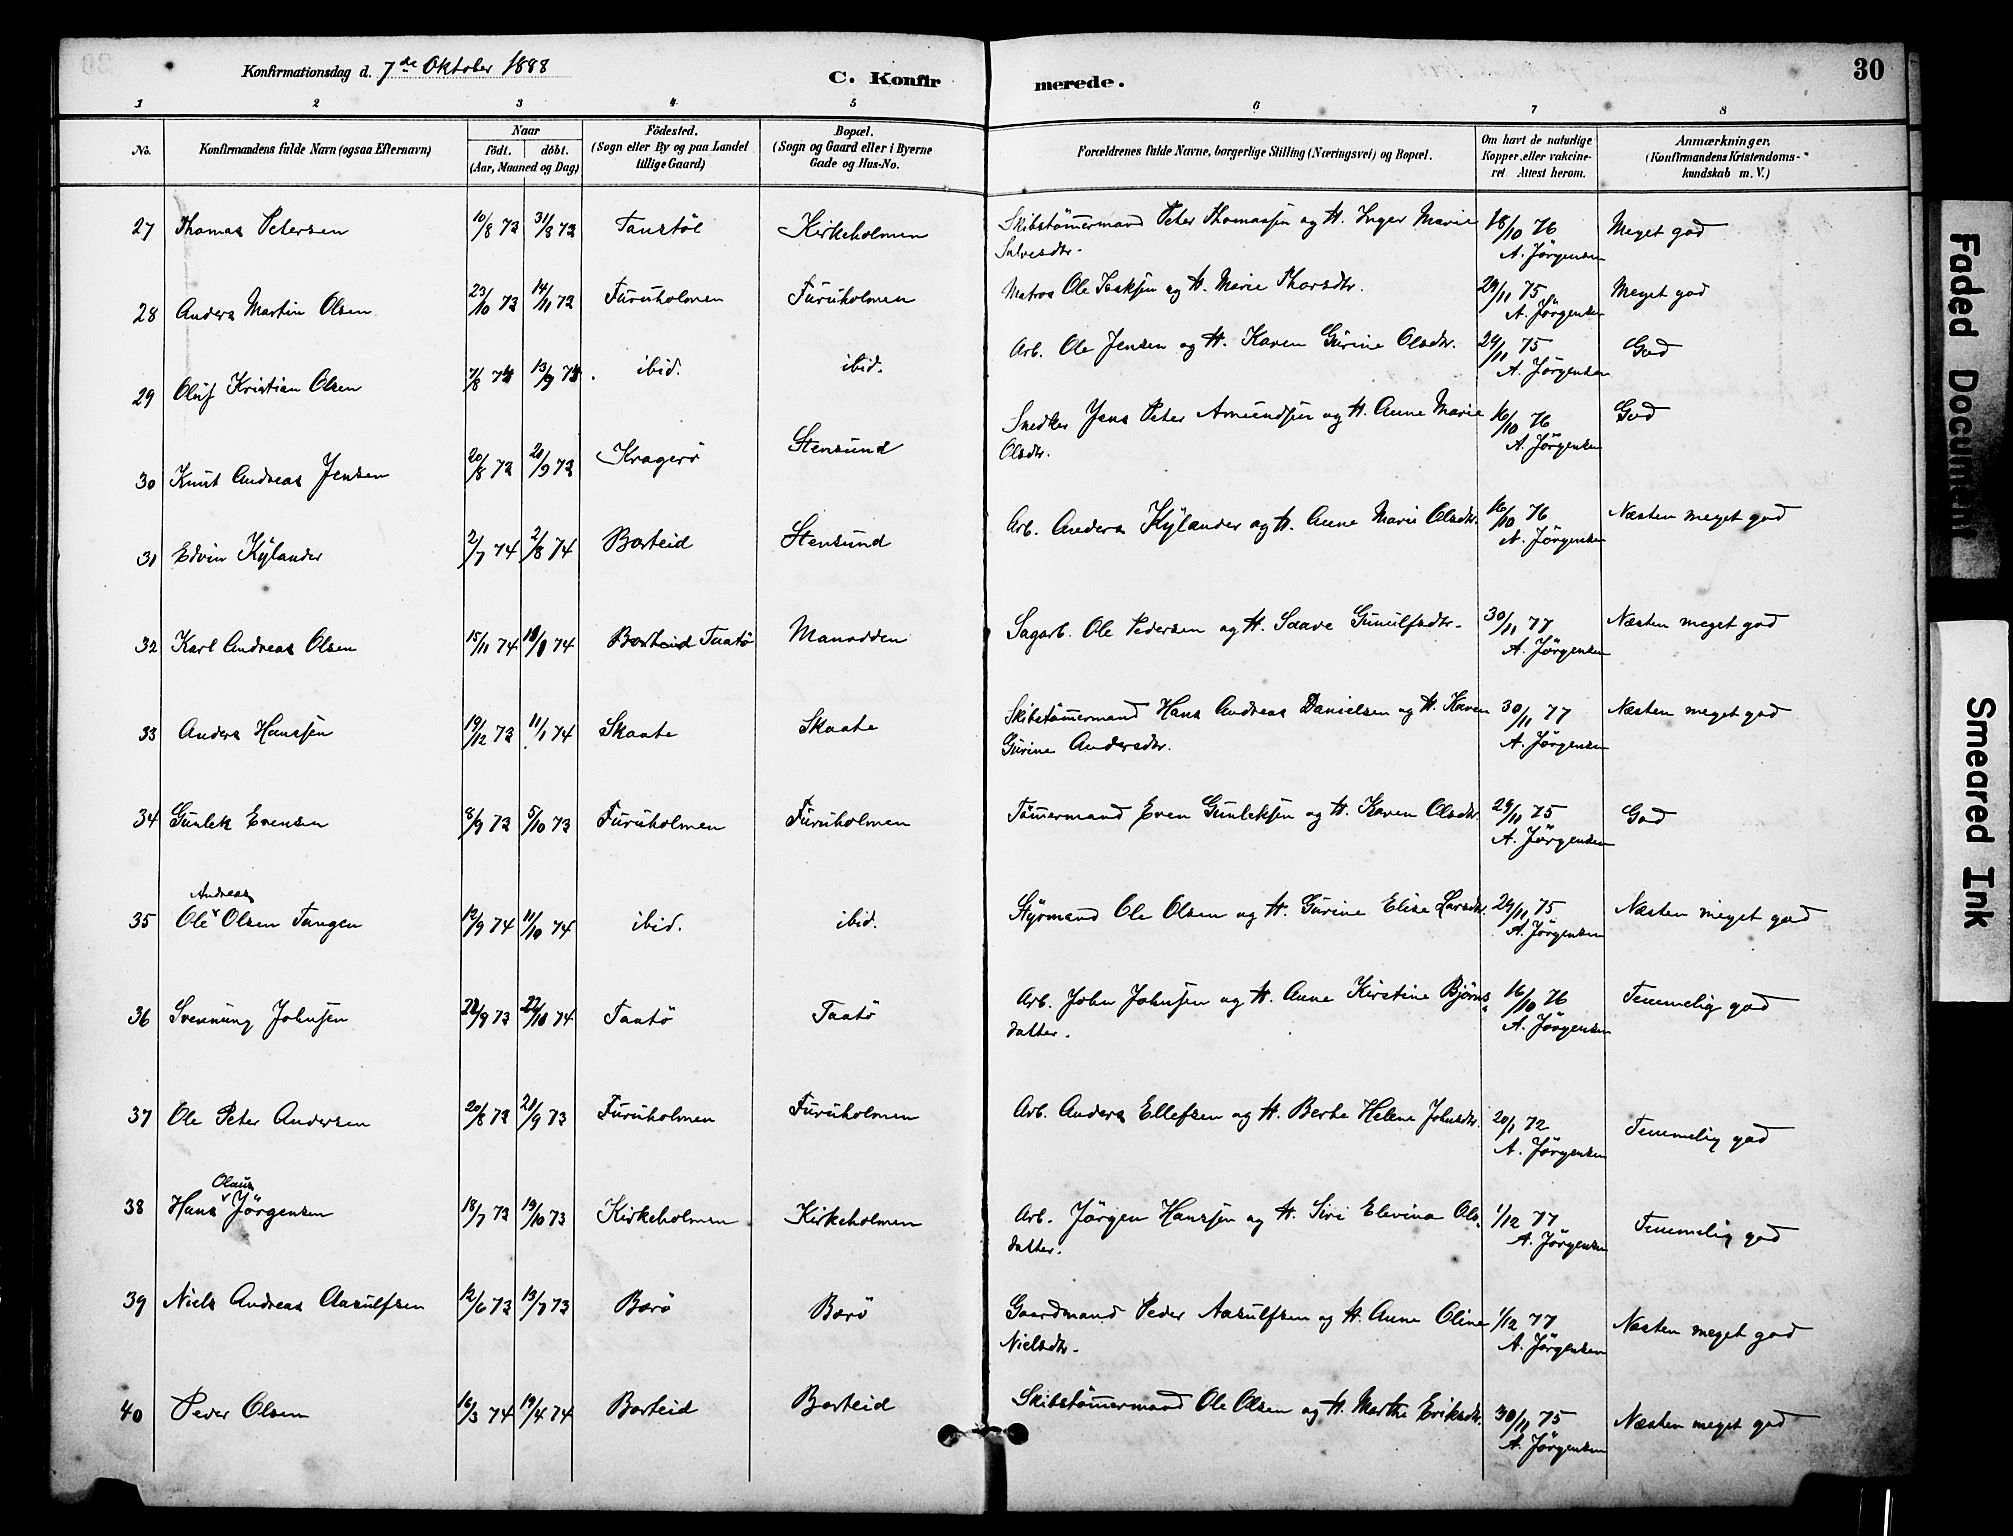 Konfirmationsdag d. 7de Oktober 1888
C. Konfirmerede.
30
1 2 3 4 5 6 7 8
No.
Konfirmandens fulde Navn (ogsaa Efternavn)
Naar
födt. döbt.
(Aar, Maaned og Dag)
Födested.
(Sogn eller By og paa Landet
tillige Gaard)
Bopæl.
(Sogn og Gaard eller i Byerne
Gade og Hus-No.
Forældrenes fulde Navne, borgerlige Stilling (Næringsvei) og Bopæl.
Om havt de naturlige
Kopper, eller vakcine-
ret. Attest herom.
Anmærkninger.
(Konfirmandens Kristendoms-
kundskab m. V.)
27 Thomas Petersen 10/8 73 31/8 73 Taustöl Kirkeholmen Skibstömermand Peter Thomassen og H. Inger Marie 18/10 76 Meget god
Salvesdtr. A. Jörgensen
28 Anders Martin Olsen 23/10 73 14/11 73 Furuholmen Furuholmen Matros Ole Isaksen og H. Marie Thorsdtr. 29/11 75 Meget god
A. Jörgensen
29 Oluf Kristian Olsen 7/8 74 13/9 74 ibid. ibid. Arb. Ole Jensen og H. Karen Gurine Olsdtr. 29/11 75 God
A. Jörgensen
30 Knut Andreas Jensen 20/8 73 21/9 73 Kragerö Stensund Snedker Jens Peter Amundsen og H. Anne Marie 16/10 76 God
Olsdtr. A. Jörgensen
31 Edvin Kylander 2/7 74 2/8 74 Barteid Stensund Arb. Anders Kylander og H. Anne Marie Olsdtr. 16/10 76 Næsten meget god
A. Jörgensen
32 Karl Andreas Olsen 15/11 74 74 Barteid Taatö Manodden Sagarb. Ole Pedersen og H. Saave Gunulfsdtr. 30/11 77 Næsten meget god
A. Jörgensen
33 Anders Hanssen 19/12 73 11/1 74 Skaate Skaate Skibstömermand Hans Andreas Danielsen og H. Karen 30/11 77 Næsten meget god
Gurine Andersdtr. A. Jörgensen
34 Gunlek Evensen 8/9 73 5/10 73 Furuholmen Furuholmen Tömermand Even Gunleksen og H. Karen Olsdtr. 29/11 75 God
A. Jörgensen
Andreas
35 Ole v Olsen Tangen 12/9 74 11/10 74 ibid. ibid. Styrmand Ole Olsen og H. Gurine Elise Larsdtr. 29/11 75 Næsten meget god
A. Jörgensen
36 Svennung Johnsen 22/9 73 22/10 74 Taatö Taatö Arb. John Johnsen og H. Anne Kirstine Björns- 16/10 76 Temmelig god
datter. A. Jörgensen
37 Ole Peter Andersen 20/8 73 21/9 73 Furuholmen Furuholmen Arb. Anders Ellefsen og H. Berte Helene Johnsdtr. 20/1 72 Temmelig god
A. Jörgensen
Olaus
38 Hans v Jörgensen 18/7 73 19/10 73 Kirkeholmen Kirkeholmen Arb. Jörgen Hanssen og H. Siri Elevina Ols- 1/12 77 Temmelig god
datter. A. Jörgensen
39 Niels Andreas Aasulfsen 12/6 73 13/7 73 Barö Barö Gaardmand Peder Aasulfsen og H. Anne Oline 1/12 77 Næsten meget god
Nielsdtr. A. Jörgensen
40 Peder Olsen 16/3 74 19/4 74 Barteid Barteid Skibstömermand Ole Olsen og H. Marthe Eriksdtr. 30/11 75 Næsten meget god
A. Jörgensen
Faded Document
Smeared Ink